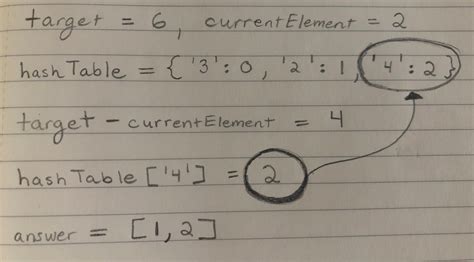 target = 6, currentElement = 2
hashTable = { '3': 0, '2': 1, '4': 2 }
target - currentElement = 4
hashTable ['4'] = 2
answer = [1, 2]